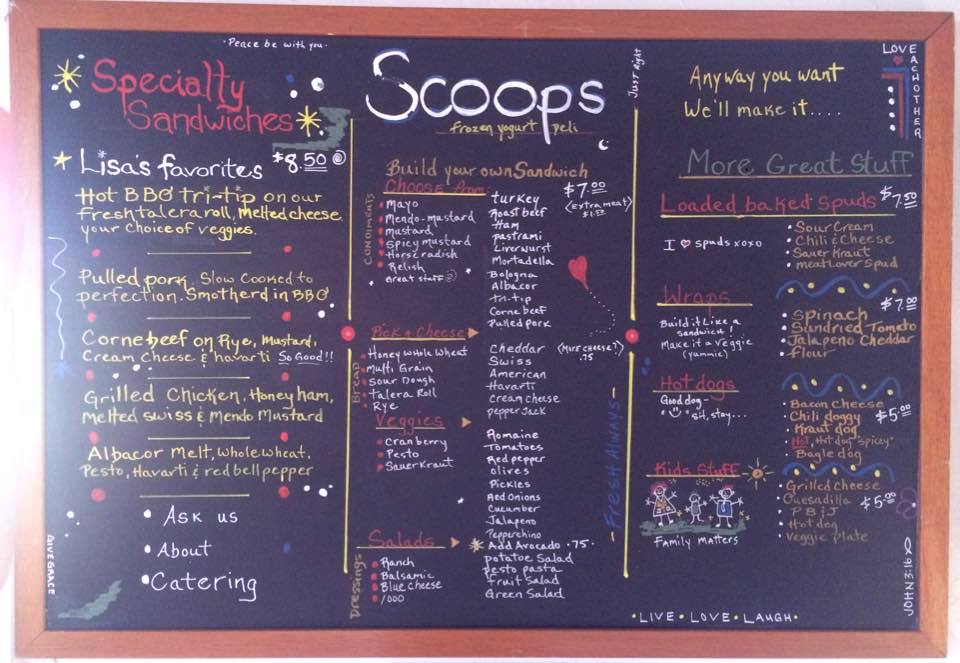 ·Peace be with you·
Specialty
Sandwiches
Lisa's favorites $8.50
Hot BBQ Tri-tip on our
fresh talera roll, melted cheese
your choice of veggies.
Pulled pork, Slow Cooked to
perfection. Smotherd in BBQ
Cornebeef on Rye, Mustard,
Cream Cheese & havarti So Good!!
Grilled Chicken, Honey ham,
melted swiss & Mendo Mustard
Albacor Melt, whole wheat,
Pesto, Havarti & red bell pepper
• Ask us
• About
• Catering
GIVE GRACE
Scoops
frozen yogurt Deli
Build your own Sandwich
Choose from
$7.00
(Extra meat)
$1.50
CONDIMENTS
• Mayo
• Mendo-mustard
• Mustard
• Spicy mustard
• Horseradish
• Relish
Great stuff
turkey
Roast beef
Ham
pastrami
Liverwurst
Mortadella
Bologna
Albacor
tri-tip
Corne beef
Pulled pork
Pick a Cheese
Cheddar
Swiss
American
Havarti
Cream cheese
pepper jack
(More cheese?)
.75
Bread
• Honey Whole Wheat
• Multi Grain
• Sour Dough
• Talera Roll
Rye
Veggies
• Cranberry
• Pesto
• Sauerkraut
Romaine
Tomatoes
Red pepper
olives
Pickles
Red Onions
Cucumber
Jalapeno
Pepperchino
Add Avocado .75.
Salads
potatoe Salad
pesto pasta
Fruit Salad
Green Salad
Dressings
• Ranch
• Balsamic
• Blue cheese
• 1000
- Fresh Always -
Just Right
Anyway you want
We'll make it....
LOVE
EACHOTHER
More Great Stuff
Loaded baked Spuds $7.50
I ♥ spuds xoxo
• Sour Cream
• Chili & Cheese
• Sauer Kraut
• meatLover Spud
Wraps $7.00
Build it Like a
sandwich!
Make it a Veggie
(yummie)
• Spinach
• Sundried Tomato
• Jalapeno Cheddar
• flour
Hot dogs $5.00
Good dog-
sit, stay...
• Bacon Cheese
• Chili doggy
• Kraut dog
• Hot, Hot dog "spicey"
• Bagle dog
Kids Stuff $5.00
Family matters
• Grilled cheese
• Quesadilla
P B & J
• Hot dog
• Veggie plate
JOHN 3:16
• LIVE • LOVE • LAUGH •